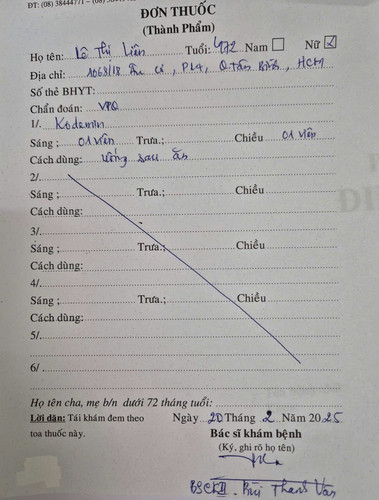 ĐT: (08) 38444771 – (08)
ĐƠN THUỐC
(Thành Phẩm)
Họ tên: Lê Thị Liên Tuổi: 1972 Nam ☐ Nữ ☑
Địa chỉ: 1063/18 P14, Q Tân Bình, HCM
Số thẻ BHYT:
Chẩn đoán: VPQ
1/. Kodemin
Sáng ; 01 viên Trưa.; Chiều 01 viên
Cách dùng: uống sau ăn
2/.
Sáng ; Trưa.; Chiều
Cách dùng:
3/.
Sáng ; Trưa.; Chiều
Cách dùng:
4/.
Sáng ; Trưa.; Chiều
Cách dùng:
5/.
6/ .
Họ tên cha, mẹ b/n dưới 72 tháng tuổi:
Lời dặn: Tái khám đem theo Ngày 20 Tháng 2 Năm 2025
toa thuốc này. Bác sĩ khám bệnh
(Ký, ghi rõ họ tên)
BSCKII. Bùi Thanh Vân